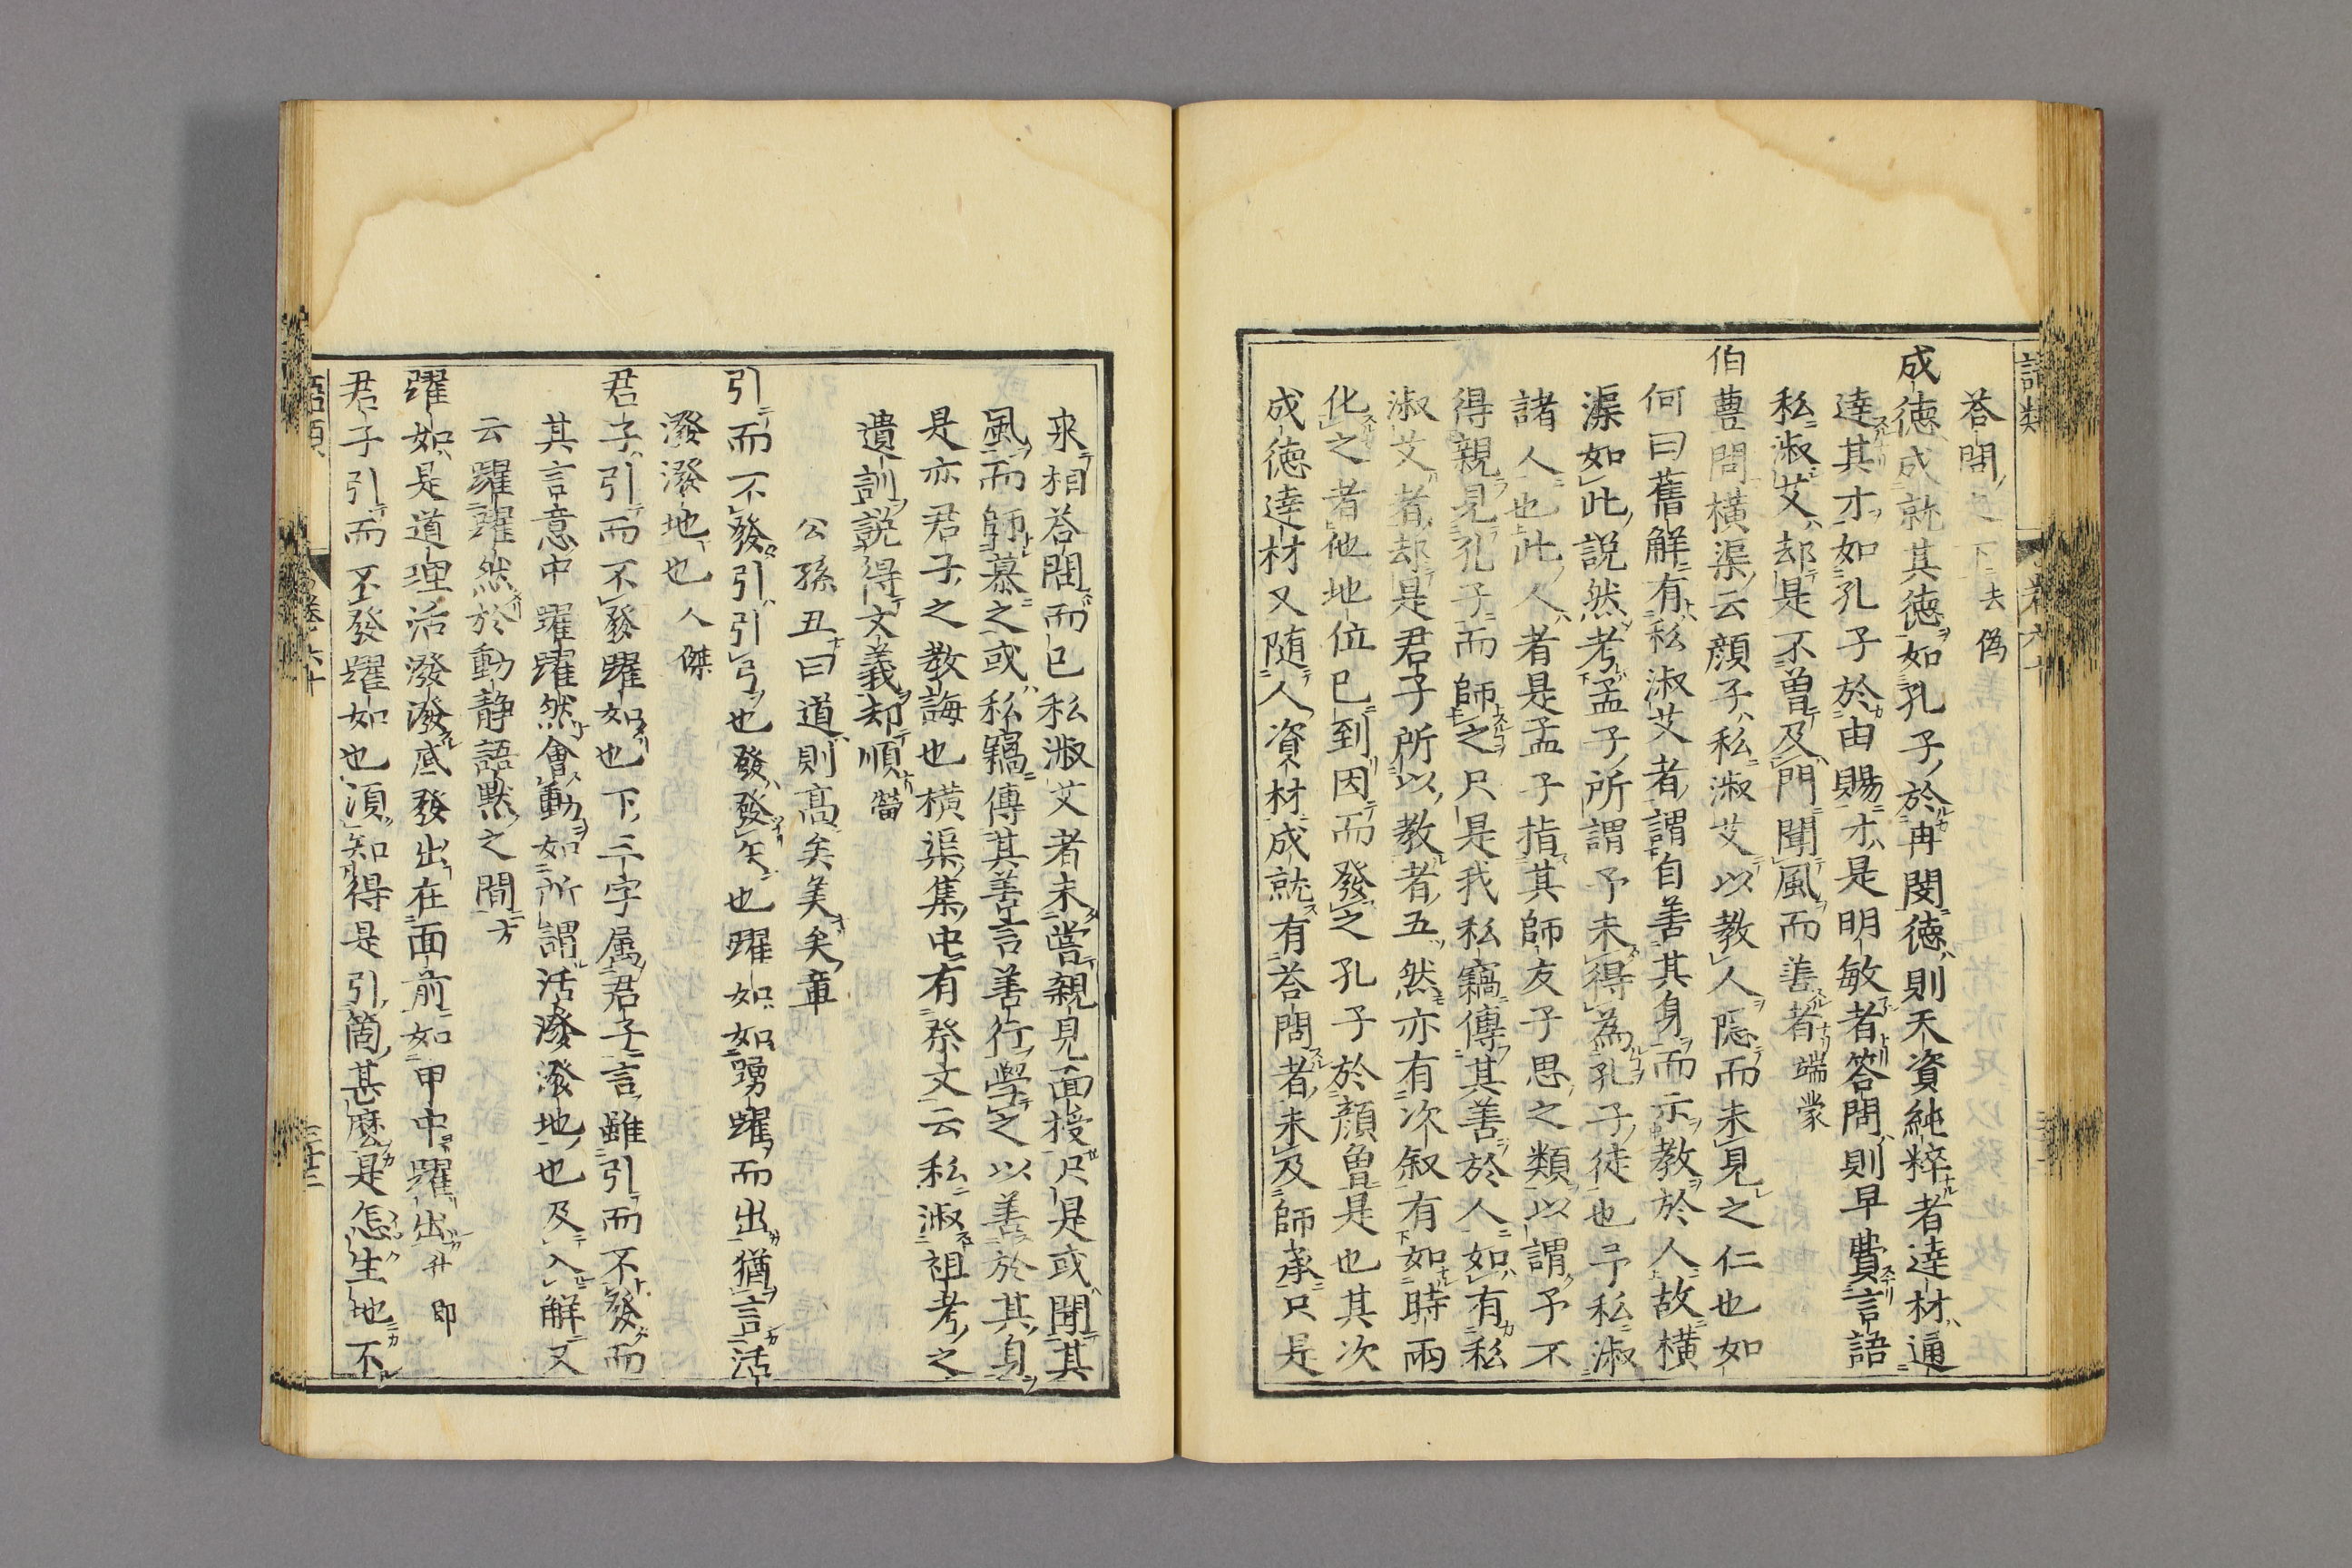 語類 卷六十
答問 去偽
成德成就其德如孔子於冉閔德則天資純粹者達材通
達其才如孔子於由賜才是明敏者答問則早費言語
私淑艾却是不曾及門聞風而善者端蒙
伯豐問橫渠云顔子私淑艾以教人隱而未見之仁也如
何曰舊解有私淑艾者謂自善其身而示教於人故橫
渠如此説然考孟子所謂予未得為孔子徒也予私淑
諸人也此人者是孟子指其師友子思之類以謂予不
得親見孔子而師之只是我私竊傳其善於人如有私
淑艾者却是君子所以教者五然亦有次叙有如時雨
化之者他地位已到因而發之孔子於顔曾是也其次
成德達材又随人資材成就有答問者未及師承只是
來相答問而已私淑艾者未嘗親見面授只是或聞其
風而師慕之或私竊傳其善言善行學之以善於其身
是亦君子之教誨也橫渠集中有祭文云私淑祖考之
遺訓説得文義却順㽦
公孫丑曰道則高矣美矣章
引而不發引引弓也發發矢也躍如如踴躍而出猶言活
潑潑地也人傑
君子引而不發躍如也下三字属君子言雖引而不發而
其言意中躍躍然會動如所謂活潑潑地也及入解又
云躍躍然於動静語黙之間方
躍如是道理活潑潑底發出在面前如甲中躍出升卿
君子引而不發躍如也須知得是引箇甚麼是怎生地不
語類 卷六十 三十二